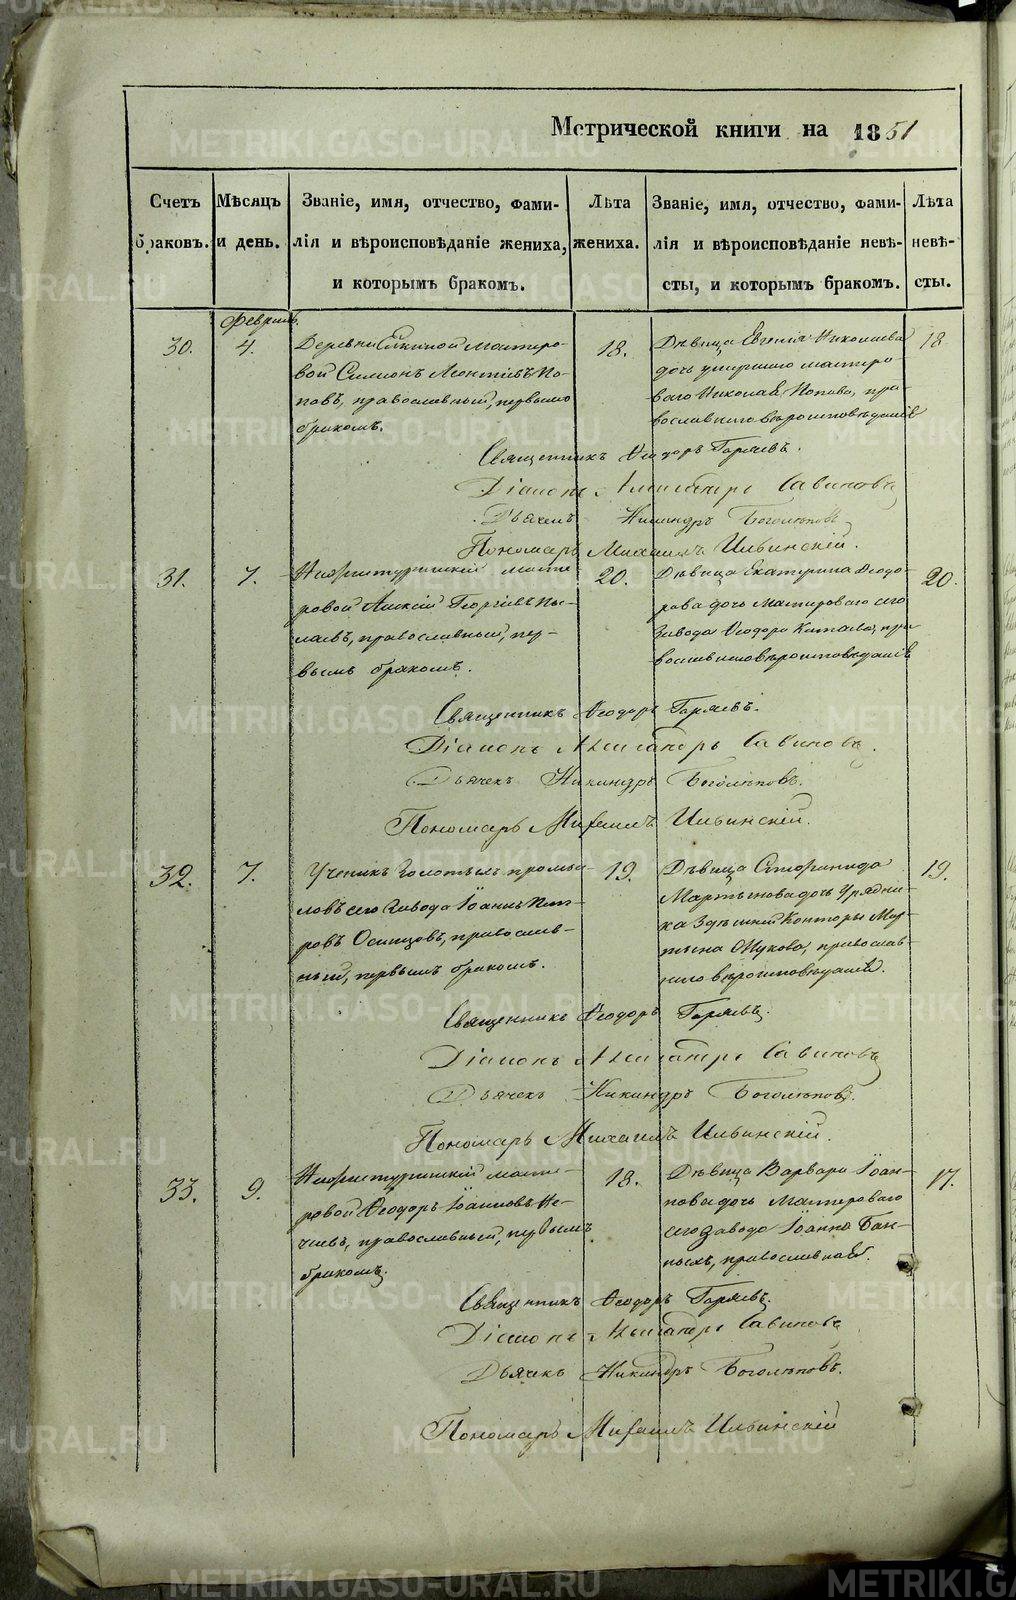 Метрической книги на 1851
Счетъ браковъ.
Мѣсяцъ и день.
Званіе, имя, отчество, фами-
лія и вѣроисповѣданіе жениха,
и которымъ бракомъ.
Лѣта жениха.
Званіе, имя, отчество, фами-
лія и вѣроисповѣданіе невѣ-
сты, и которымъ бракомъ.
Лѣта невѣ-
сты.
Февраль.
30.
4.
Деревни мастеро-
вой Симіонъ Леонтіевъ По-
повъ, православный, первымъ
бракомъ.
18.
Дѣвица Евгенія Николаева
дочь умершаго мастеро
ваго Николая Попова, пра-
вославнаго вѣроисповѣданія
18
Священникъ Ѳеодоръ Горяевъ.
Діаконъ Александръ Савиновъ
Дьячекъ Никандръ Боголѣповъ
Пономарь Михаилъ Ильинскій.
31.
7.
Нижнетуринскій масте
ровой Алексій Георгіевъ
православный, пер-
вымъ бракомъ.
20.
Дѣвица Екатерина Ѳеодо-
рова дочь мастероваго сего
завода Ѳеодора Китаева, пра
вославнаго вѣроисповѣданія
20.
Священникъ Ѳеодоръ Горяевъ.
Діаконъ Александръ Савиновъ.
Дьячекъ Никандръ Боголѣповъ.
Пономарь Михаилъ Ильинскій.
32.
7.
Ученикъ Золотыхъ промы-
словъ сего Завода Іоаннъ Пет-
ровъ Осинцовъ, православ-
ный, первымъ бракомъ.
19.
Дѣвица Стефанида
Мартынова дочь Урядни-
ка Здѣшней Конторы Мар-
тына Жукова, православ-
наго вѣроисповѣданія.
19.
Священникъ Ѳеодоръ Горяевъ.
Діаконъ Александръ Савиновъ
Дьячекъ Никандръ Боголѣповъ.
Пономарь Михаилъ Ильинскій.
33.
9.
Нижнетуринскій масте-
ровой Ѳеодоръ Іоанновъ Не-
чаевъ, православный, первымъ
бракомъ.
18.
Дѣвица Варвара Іоан-
нова дочь Мастероваго
сего завода Іоанна Бан-
ныхъ, православная.
17.
Священникъ Ѳеодоръ Горяевъ.
Діаконъ Александръ Савиновъ
Дьячекъ Никандръ Боголѣповъ.
Пономарь Михаилъ Ильинскій
METRIKI.GASO-URAL.RU